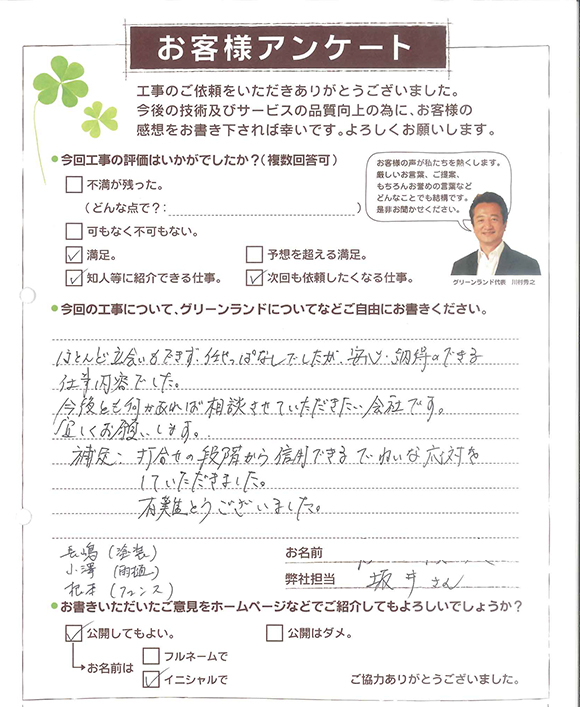 お客様アンケート
工事のご依頼をいただきありがとうございました。
今後の技術及びサービスの品質向上の為に、お客様の
感想をお書き下されば幸いです。よろしくお願いします。
今回工事の評価はいかがでしたか?(複数回答可)
不満が残った。
(どんな点で?:)
可もなく不可もない。
満足。
予想を超える満足。
知人等に紹介できる仕事。
次回も依頼したくなる仕事。
お客様の声が私たちを熱くします。
厳しいお言葉、ご提案、
もちろんお誉めの言葉など
どんなことでも結構です。
是非お聞かせください。
グリーンランド代表 川村秀之
今回の工事について、グリーンランドについてなどご自由にお書きください。
ほとんど立会いもできず、任せっぱなしでしたが、安心・納得のできる
仕事内容でした。
今後とも何かあれば相談させていただきたい会社です。
宜しくお願いします。
補足: 打合せの段階から信用できるていねいな応対を
していただきました。
有難とうございました。
長嶋(塗装)
小澤(雨樋)
(フェンス)
お名前
弊社担当 坂井さん
お書きいただいたご意見をホームページなどでご紹介してもよろしいでしょうか?
公開してもよい。
公開はダメ。
お名前は
フルネームで
イニシャルで
ご協力ありがとうございました。